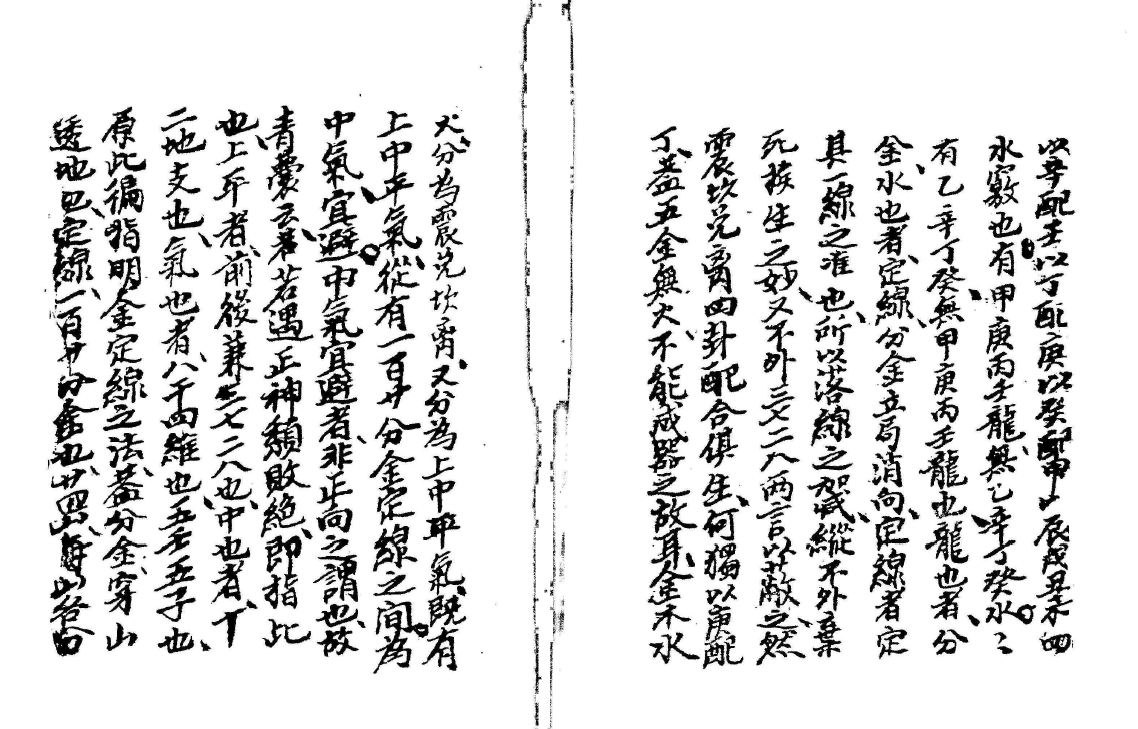 以辛配壬以丁配庚以癸配甲山辰戌丑未四
水竅也有甲庚丙壬龍無乙辛丁癸水〻
有乙辛丁癸無甲庚丙壬龍也龍也者分
金水也者定線分金立局消向定線者定
其一線之准也所以落線之加减縱不外棄
死挨生之妙又不外三七二八两言以蔽之然
震坎兌离四卦配合俱生何獨以庚配
丁蓋五金無火不能成器之故耳金木水
火分為震兌坎离又分為上中平氣既有
上中平氣從有一百廿分金定線之间為
中氣宜避中氣宜避者非正向之謂也故
青囊云若遇正神顛敗絕即指此
也上平者前後兼三七二八也中也者十
二地支也氣也者八干四維也五壬五子也
原此徧指明金定線之法蓋分金穿山
透地定線一百廿分金也廿四山每山各